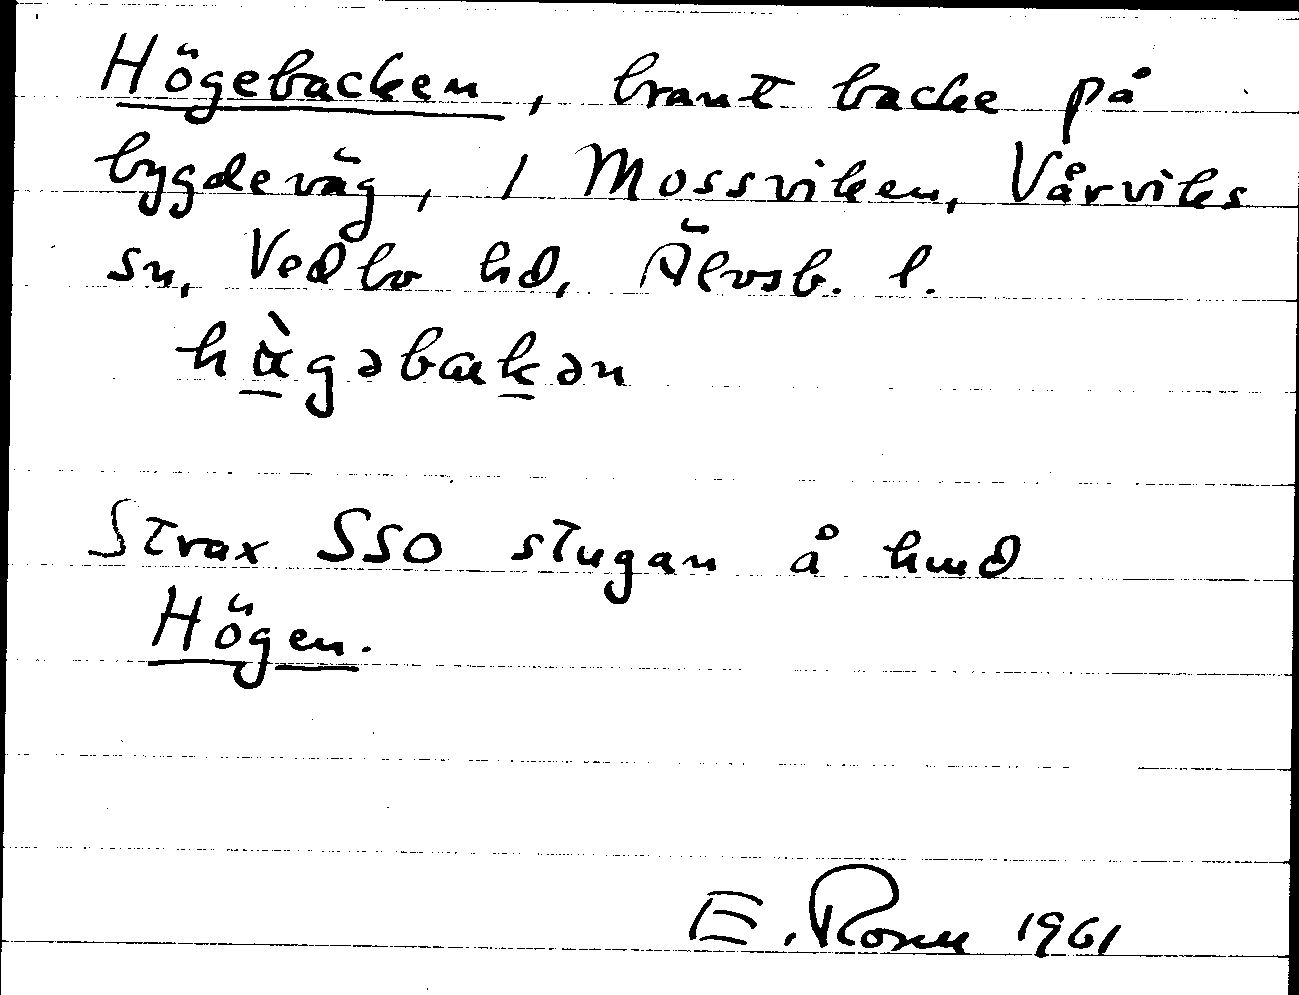 Högebacken, brant backe på
bygdeväg, 1 Mossviken, Vårviks
sn, Vedbo hd, Älvsb. l.
hàgəbakən
Strax SSO stugan å hmd
Högen.
E. Rosen 1961